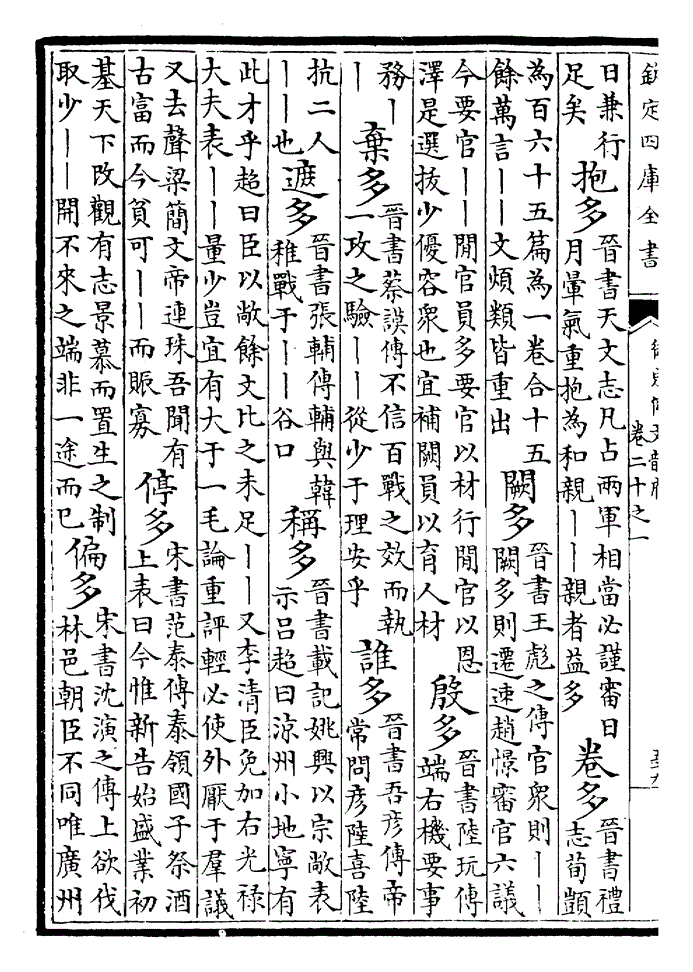 欽定四庫全書
卷二十之一
日兼行
足矣
抱多
晉書天文志凡占兩軍相當必謹審日
月暈氣重抱為和親丨丨親者益多
卷多
晉書禮
志荀顗
為百六十五篇為一卷合十五
餘萬言丨丨文煩類皆重出
闕多
晉書王彪之傳官衆則丨丨
闕多則遷速趙憬審官六議
今要官丨丨閒官員多要官以材行閒官以恩
澤是選拔少優容衆也宜補闕員以育人材
殷多
晉書陸玩傳
端右機要事
務丨
丨
棄多
晉書蔡謨傳不信百戰之效而執
一攻之驗丨丨從少于理安乎
誰多
晉書吾彦傳帝
常問彦陸喜陸
抗二人
丨丨也
遮多
晉書張輔傳輔與韓
稚戰于丨丨谷口
稱多
晉書載記姚興以宗敞表
示吕超曰涼州小地寧有
此才乎超曰臣以敞餘文比之未足丨丨又李清臣免加右光禄
大夫表丨丨量少豈宜有大于一毛論重評輕必使外厭于羣議
又去聲梁簡文帝連珠吾聞有
古富而今貧可丨丨而賑寡
停多
宋書范泰傳泰領國子祭酒
上表曰今惟新告始盛業初
基天下改觀有志景慕而置生之制
取少丨丨開不來之端非一途而已
偏多
宋書沈演之傳上欲伐
林邑朝臣不同唯廣州